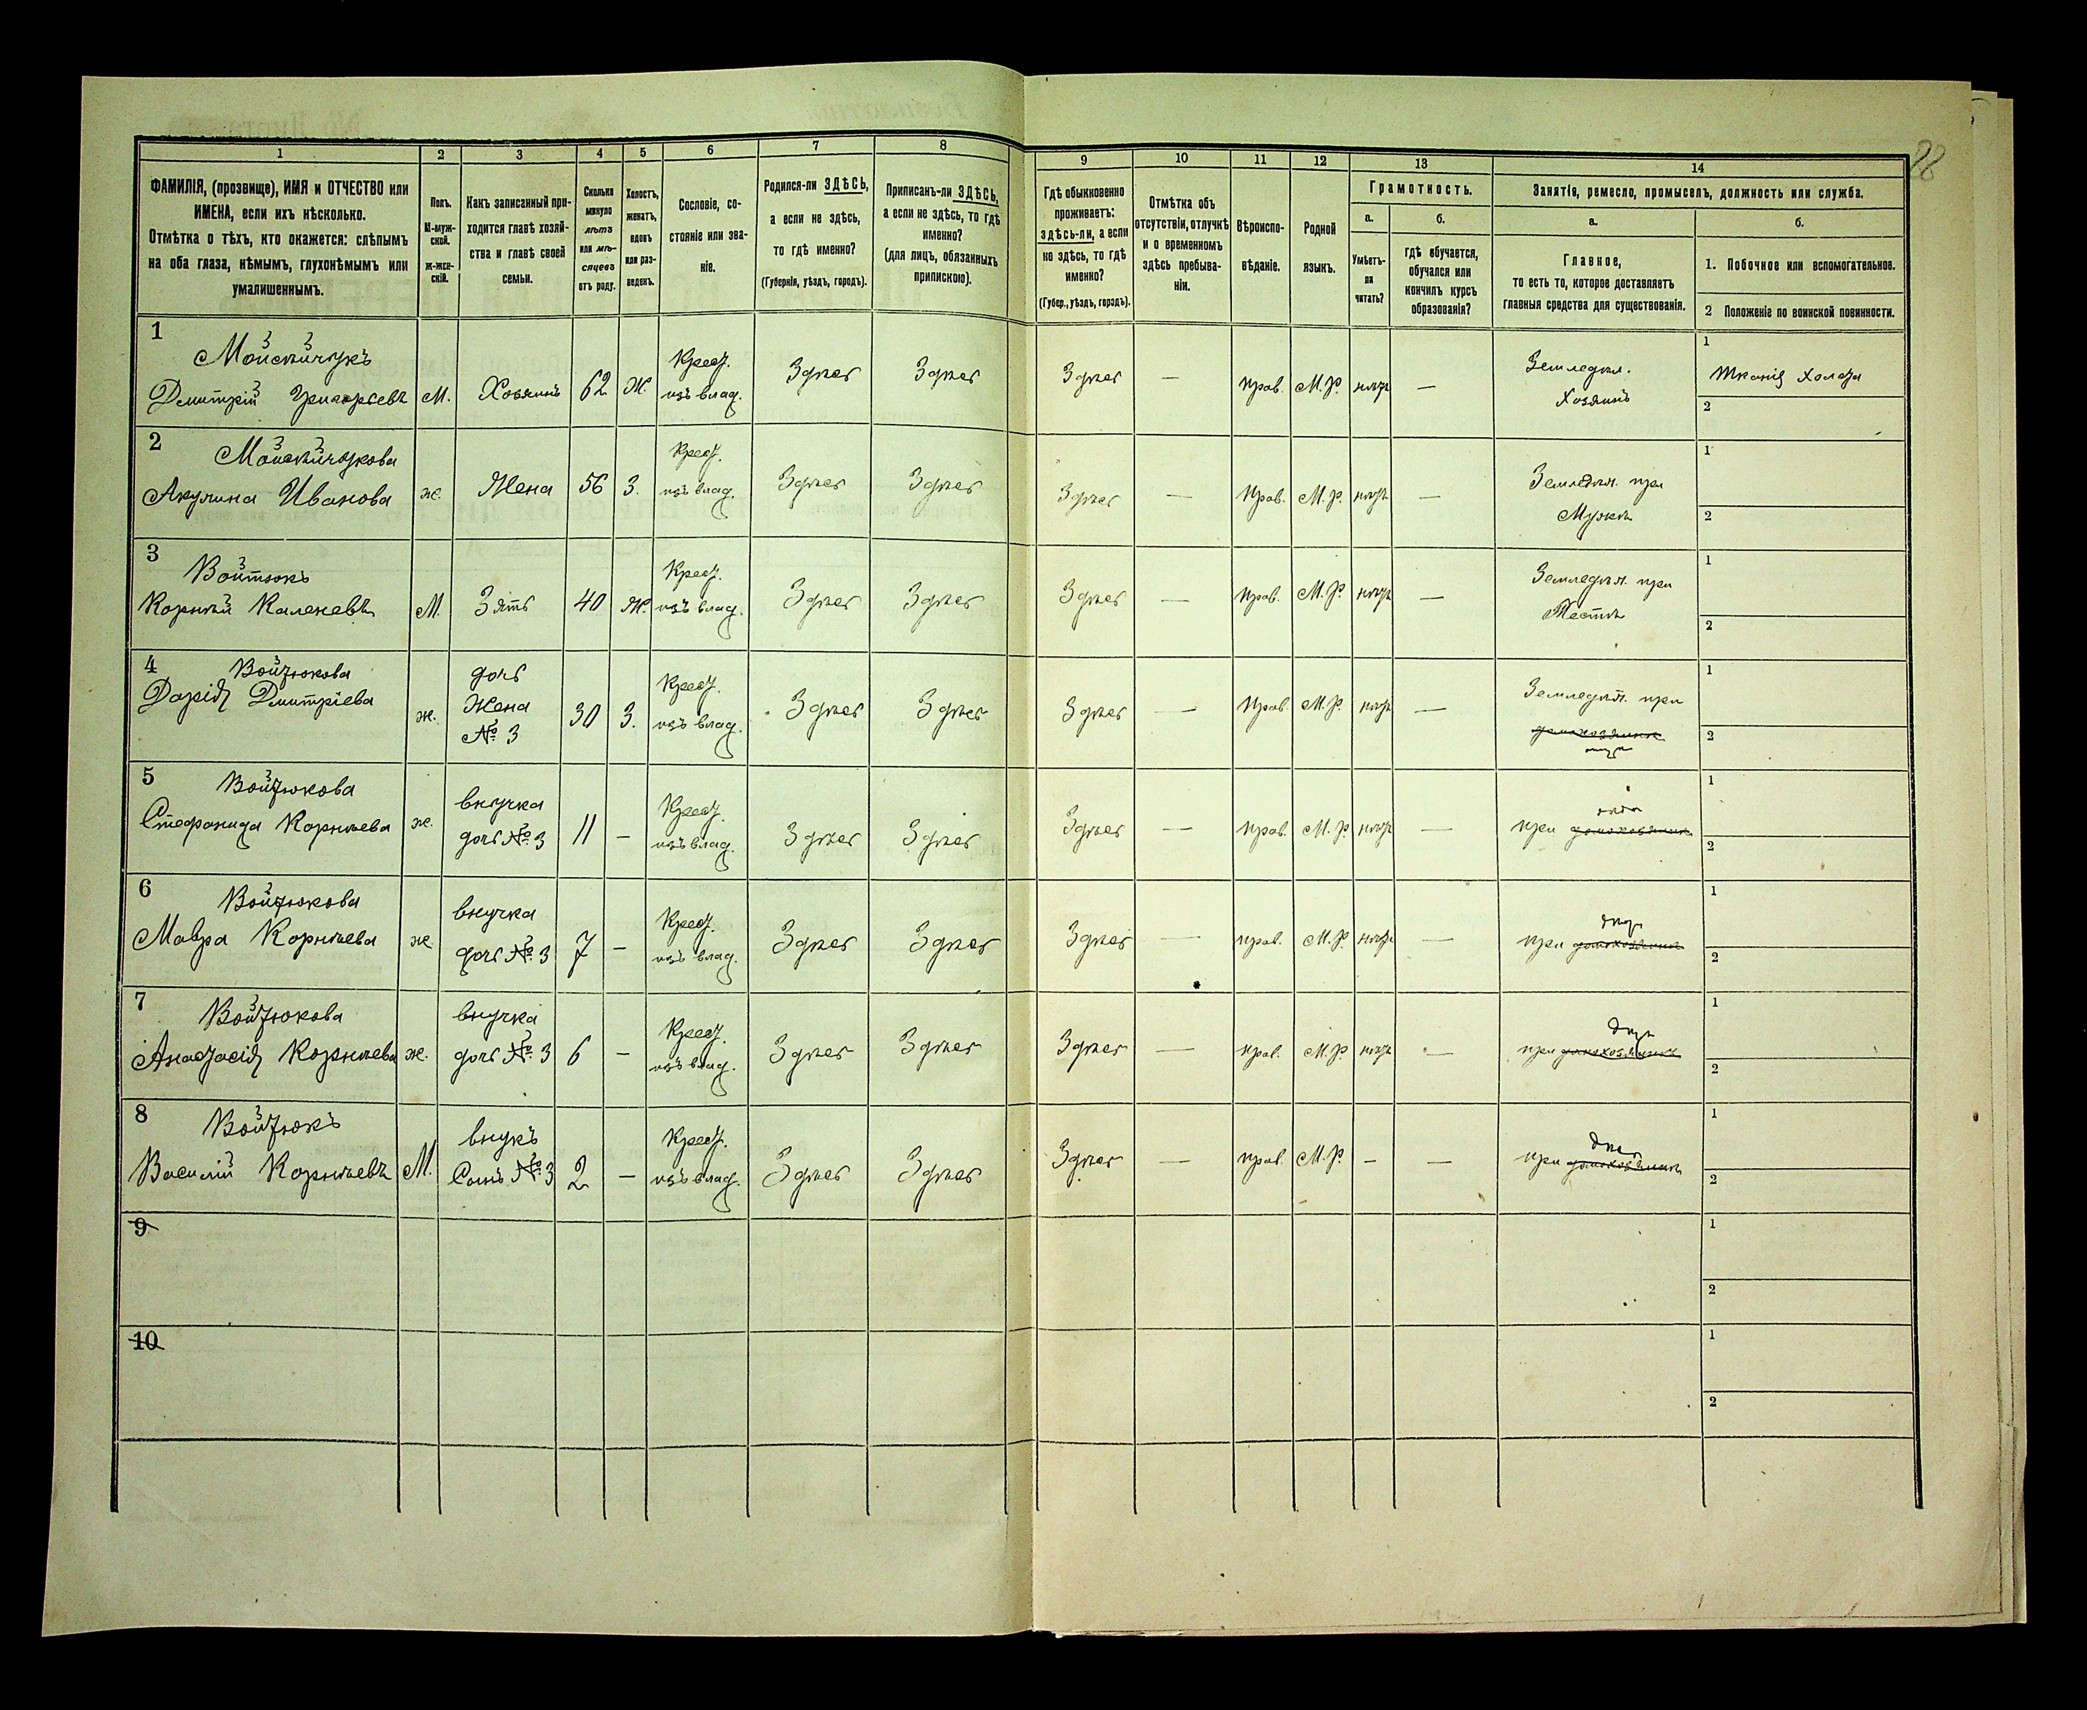 88
1 2 3 4 5 6 7 8 9 10 11 12 13 14
ФАМИЛІЯ, (прозвище), ИМЯ и ОТЧЕСТВО или
ИМЕНА, если ихъ нѣсколько.
Отмѣтка о тѣхъ, кто окажется: слѣпымъ
на оба глаза, нѣмымъ, глухонѣмымъ или
умалишеннымъ.
Полъ.
М-муж-
ской.
ж-жен-
скій.
Какъ записанный при-
ходится главѣ хозяй-
ства и главѣ своей
семьи.
Сколько
минуло
лѣтъ
или мѣ-
сяцевъ
отъ роду.
Холостъ,
женатъ,
вдовъ
или раз-
веденъ.
Сословіе, со-
стояніе или зва-
ніе.
Родился-ли ЗДѢСЬ,
а если не здѣсь,
то гдѣ именно?
(Губернія, уѣздъ, городъ).
Приписанъ-ли ЗДѢСЬ,
а если не здѣсь, то гдѣ
именно?
(для лицъ, обязанныхъ
припискою).
Гдѣ обыкновенно
проживаетъ:
здѣсь-ли, а если
не здѣсь, то гдѣ
именно?
(Губер., уѣздъ, городъ).
Отмѣтка объ
отсутствіи, отлучкѣ
и о временномъ
здѣсь пребыва-
ніи.
Вѣроиспо-
вѣданіе.
Родной
языкъ.
Грамотность.
а.
Умѣетъ-
ли
читать?
б.
гдѣ обучается,
обучался или
кончилъ курсъ
образованія?
Занятія, ремесло, промыселъ, должность или служба.
а.
Главное,
то есть то, которое доставляетъ
главныя средства для существованія.
б.
1. Побочное или вспомогательное.
2 Положеніе по воинской повинности.
1
Мойсѣйчукъ
Дмитрій Григорьевъ М. Хозяинъ 62 Ж. Крест. изъ влад. Здѣсь Здѣсь Здѣсь — прав. М.Р. нѣтъ — Земледѣл. Хозяинъ 1 Тканіе холста 2
2
Мойсѣйчукова
Акулина Иванова ж. Жена 56 З. Крест. изъ влад. Здѣсь Здѣсь Здѣсь — Прав. М.Р. нѣтъ — Земледѣл. при Мужѣ 1 2
3
Войтюкъ
Корнѣй Каленевъ М. Зять 40 Ж. Крест. изъ влад. Здѣсь Здѣсь Здѣсь — прав. М.Р. нѣтъ — Земледѣл. при Тестѣ 1 2
4
Войтюкова
Дарія Дмитріева ж. дочь Жена № 3 30 З. Крест. изъ влад. Здѣсь Здѣсь Здѣсь — Прав. М.Р. нѣтъ — Земледѣл. при домохозяинѣ отцѣ 1 2
5
Войтюкова
Стефанида Корнѣева ж. внучка дочь № 3 11 — Крест. изъ влад. Здѣсь Здѣсь Здѣсь — прав. М.Р. нѣтъ — при домохозяинѣ 1 2
6
Войтюкова
Мавра Корнѣева ж. внучка дочь № 3 7 — Крест. изъ влад. Здѣсь Здѣсь Здѣсь — прав. М.Р. нѣтъ — при домохозяинѣ дѣдѣ 1 2
7
Войтюкова
Анастасія Корнѣева ж. внучка дочь № 3 6 — Крест. изъ влад. Здѣсь Здѣсь Здѣсь — прав. М.Р. нѣтъ — при домохозяинѣ дѣдѣ 1 2
8
Войтюкъ
Василій Корнѣевъ М. внукъ Сынъ № 3 2 — Крест. изъ влад. Здѣсь Здѣсь Здѣсь — прав. М.Р. — — при домохозяинѣ дѣдѣ 1 2
9 1 2
10 1 2